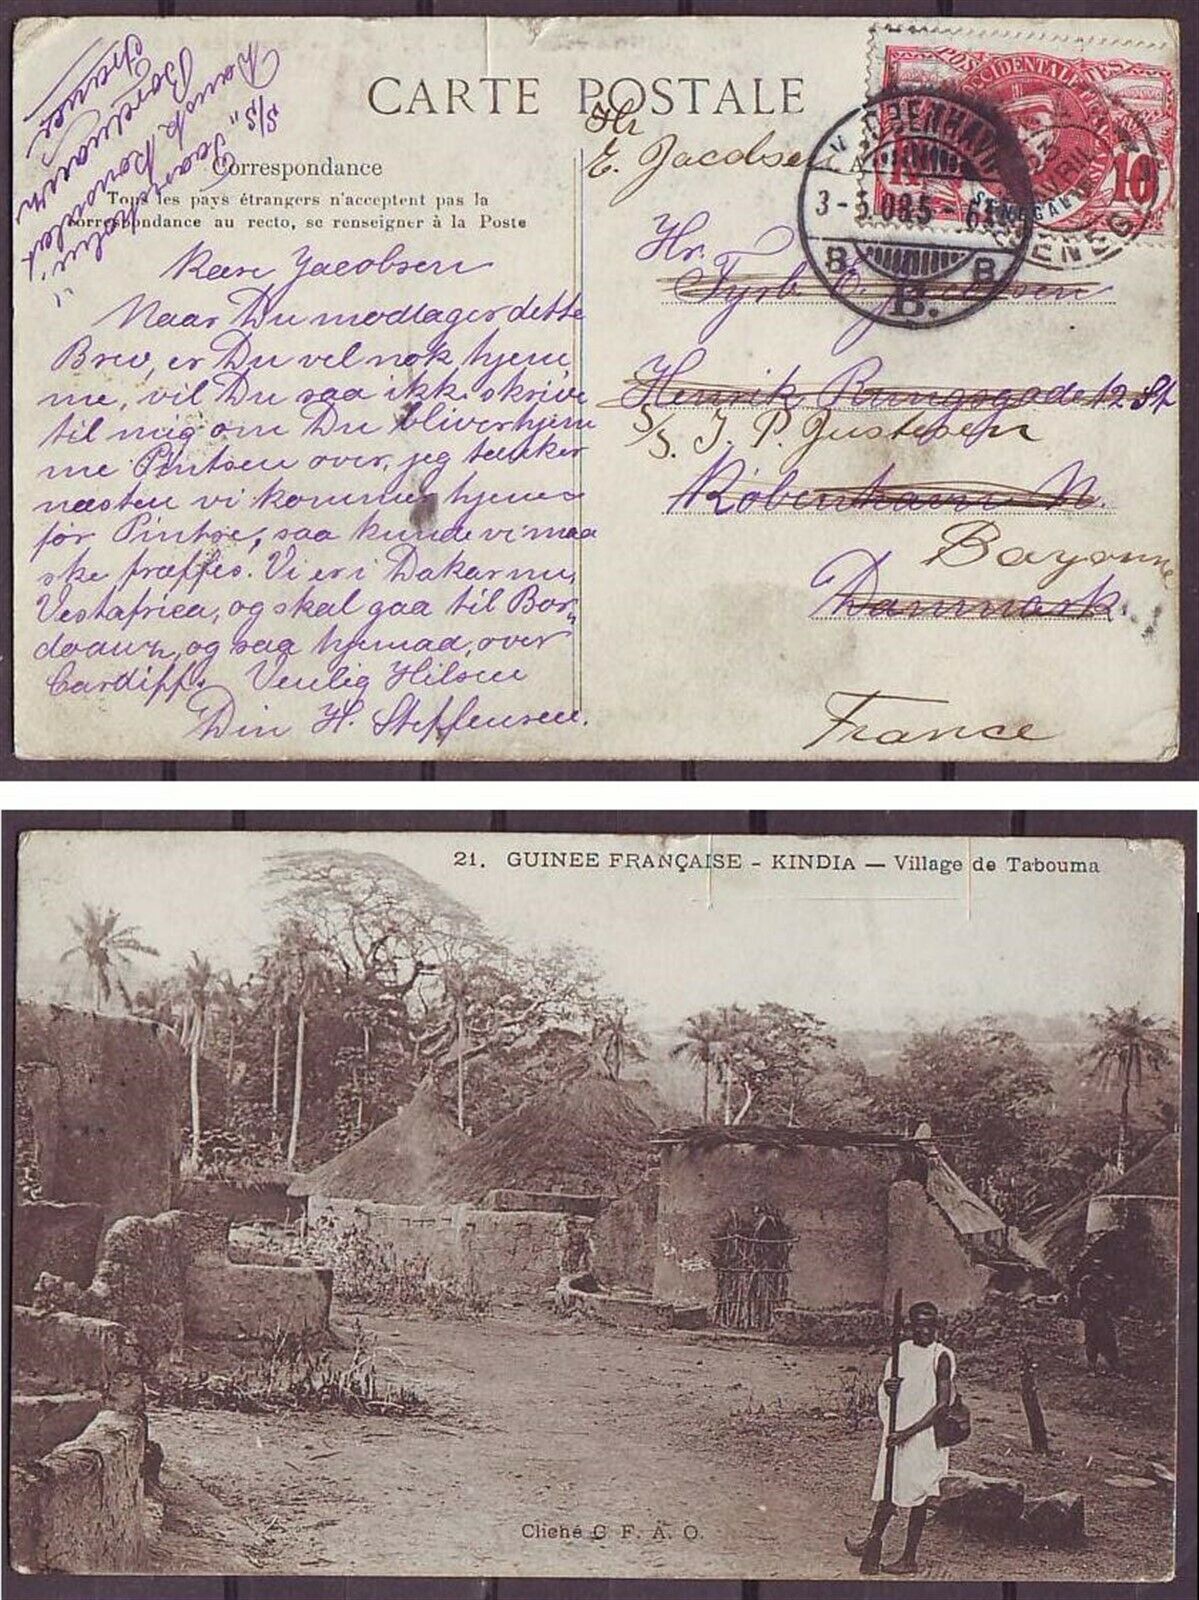 CARTE POSTALE
Correspondance
Tous les pays étrangers n'acceptent pas la
correspondance au recto, se renseigner à la Poste
S/S "
Dansk Konsulat
Frankrig
Kære Jacobsen
Naar Du modtager dette
Brev, er Du vel nok hjem
me, vil Du saa ikk skrive
til mig om Du bliver hjem
me Pintsen over, jeg tænker
næsten vi kommer hjem
før Pintse, saa kunde vi maa
ske træffes. Vi er i Dakar nu,
Vestafrica, og skal gaa til Bor
doaux, og saa hjemad, over
Cardiff. Venlig Hilsen
Din H. Steffensen.
Hr
E. Jacobsen
Hr.
Fyrb E. Jacobsen
Henrik Rungsgade 12 St
S/S. J. P. Justesen
København N.
Bayonne
Danmark
France
OCCIDENTALE FRSE
POSTES
10
SENEGAL
KJØBENHAVN
3-5.08 5-6
B. B.
B.
AVRIL
SENEGAL
21. GUINEE FRANÇAISE - KINDIA — Village de Tabouma
Cliché C F. A. O.